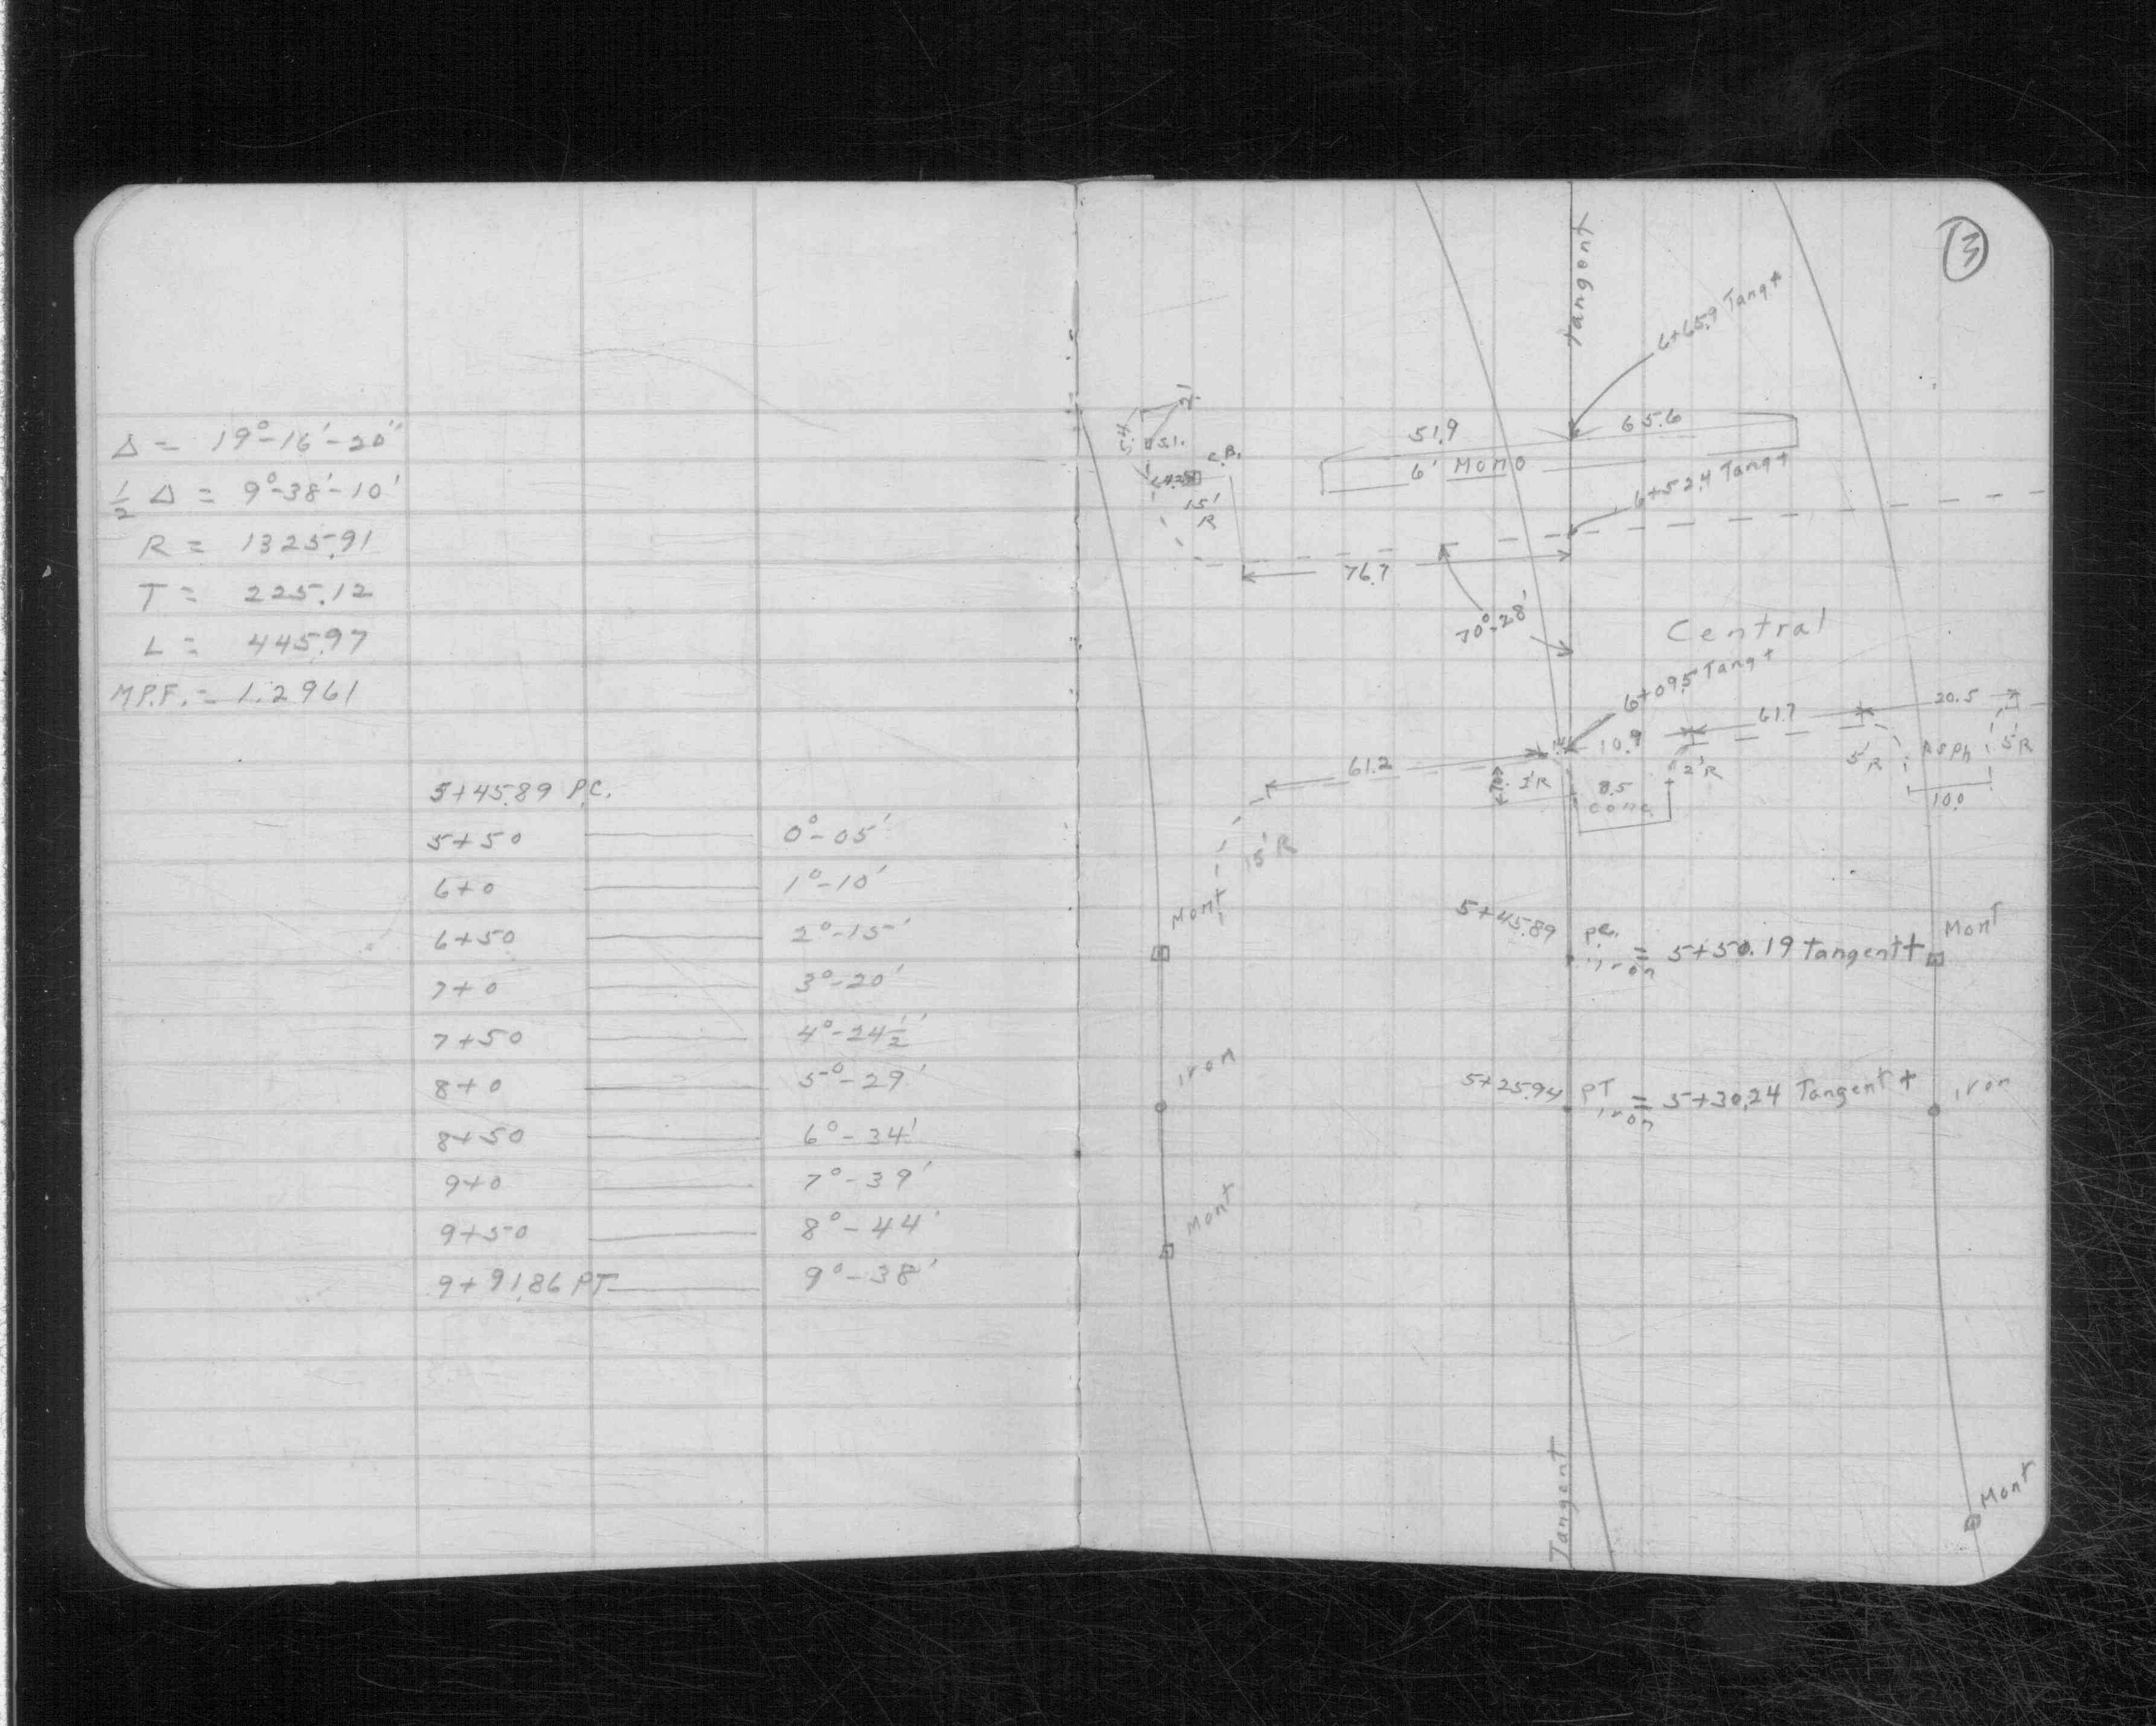 Δ = 19°-16'-20"
1/2 Δ = 9°-38'-10'
R = 1325.91
T = 225.12
L = 445.97
M.P.F. = 1.2961
5+45.89 P.C.
5+50 0°-05'
6+0 1°-10'
6+50 2°-15'
7+0 3°-20'
7+50 4°-24 1/2'
8+0 5°-29'
8+50 6°-34'
9+0 7°-39'
9+50 8°-44'
9+91.86 PT 9°-38'
3
Tangent
6+65.9 Tang+
51.9 65.6
6' Mono
5.4
C.B.
15'
R
6+52.4 Tang+
76.7
70°-28'
Central
6+09.5 Tang+
20.5
61.7
10.9
61.2
5'R
Asph
5'R
2'R
8.5
conc
10.0
15'R
Mont
5+45.89 P.C. = 5+50.19 Tangent+
iron
Mont
iron
5+25.94 PT = 5+30.24 Tangent+
iron
iron
Mont
Tangent
Mont